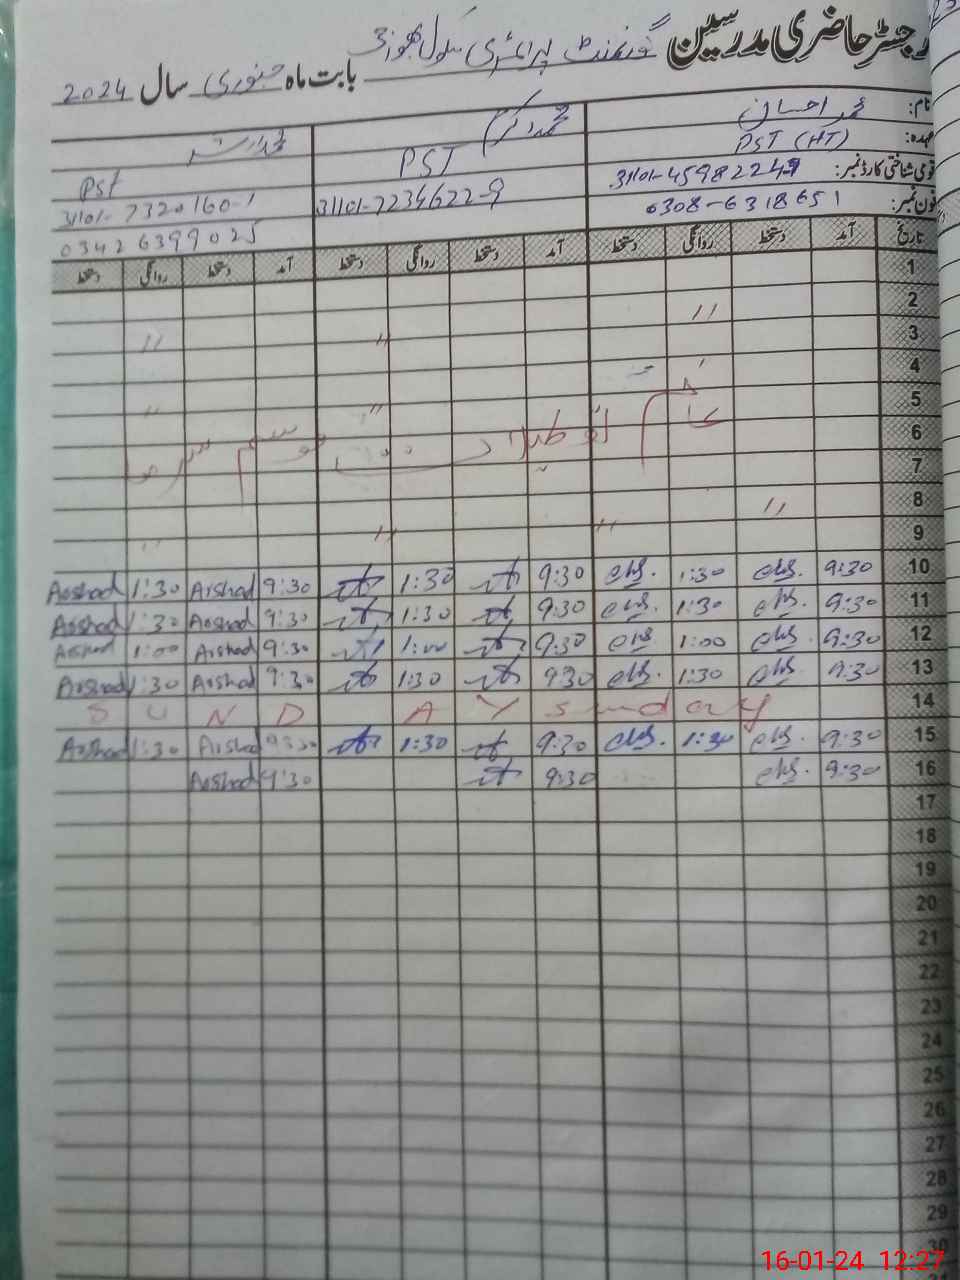 رجسٹر حاضری مدرسین گورنمنٹ پرائمری سکول
بابت ماہ جنوری سال 2024
نام: محمد احسان محمد اکرم محمد ارشد
عہدہ: PST (HT) PST PST
قومی شناختی کارڈ نمبر: 31101-7234622-9 31101-7320160-1
فون نمبر: 0308-6318651 03426399025
تاریخ آمد دستخط روانگی دستخط آمد دستخط روانگی دستخط آمد دستخط روانگی دستخط
1
2 "
3 " "
4
5 " "
6 عام تعطیلات موسم سرما
7
8 "
9 " " "
10 9:30 1:30 9:30 1:30 9:30 Arshad 1:30 Arshad
11 9:30 1:30 9:30 1:30 9:30 Arshad 1:30 Arshad
12 9:30 1:00 9:30 1:00 9:30 Arshad 1:00 Arshad
13 9:30 1:30 9:30 1:30 9:30 Arshad 1:30 Arshad
14 SUNDAY sunday
15 9:30 1:30 9:30 1:30 9:30 Arshad 1:30 Arshad
16 9:30 9:30 9:30 Arshad
17
18
19
20
21
22
23
24
25
26
27
28
29
30
16-01-24 12:27